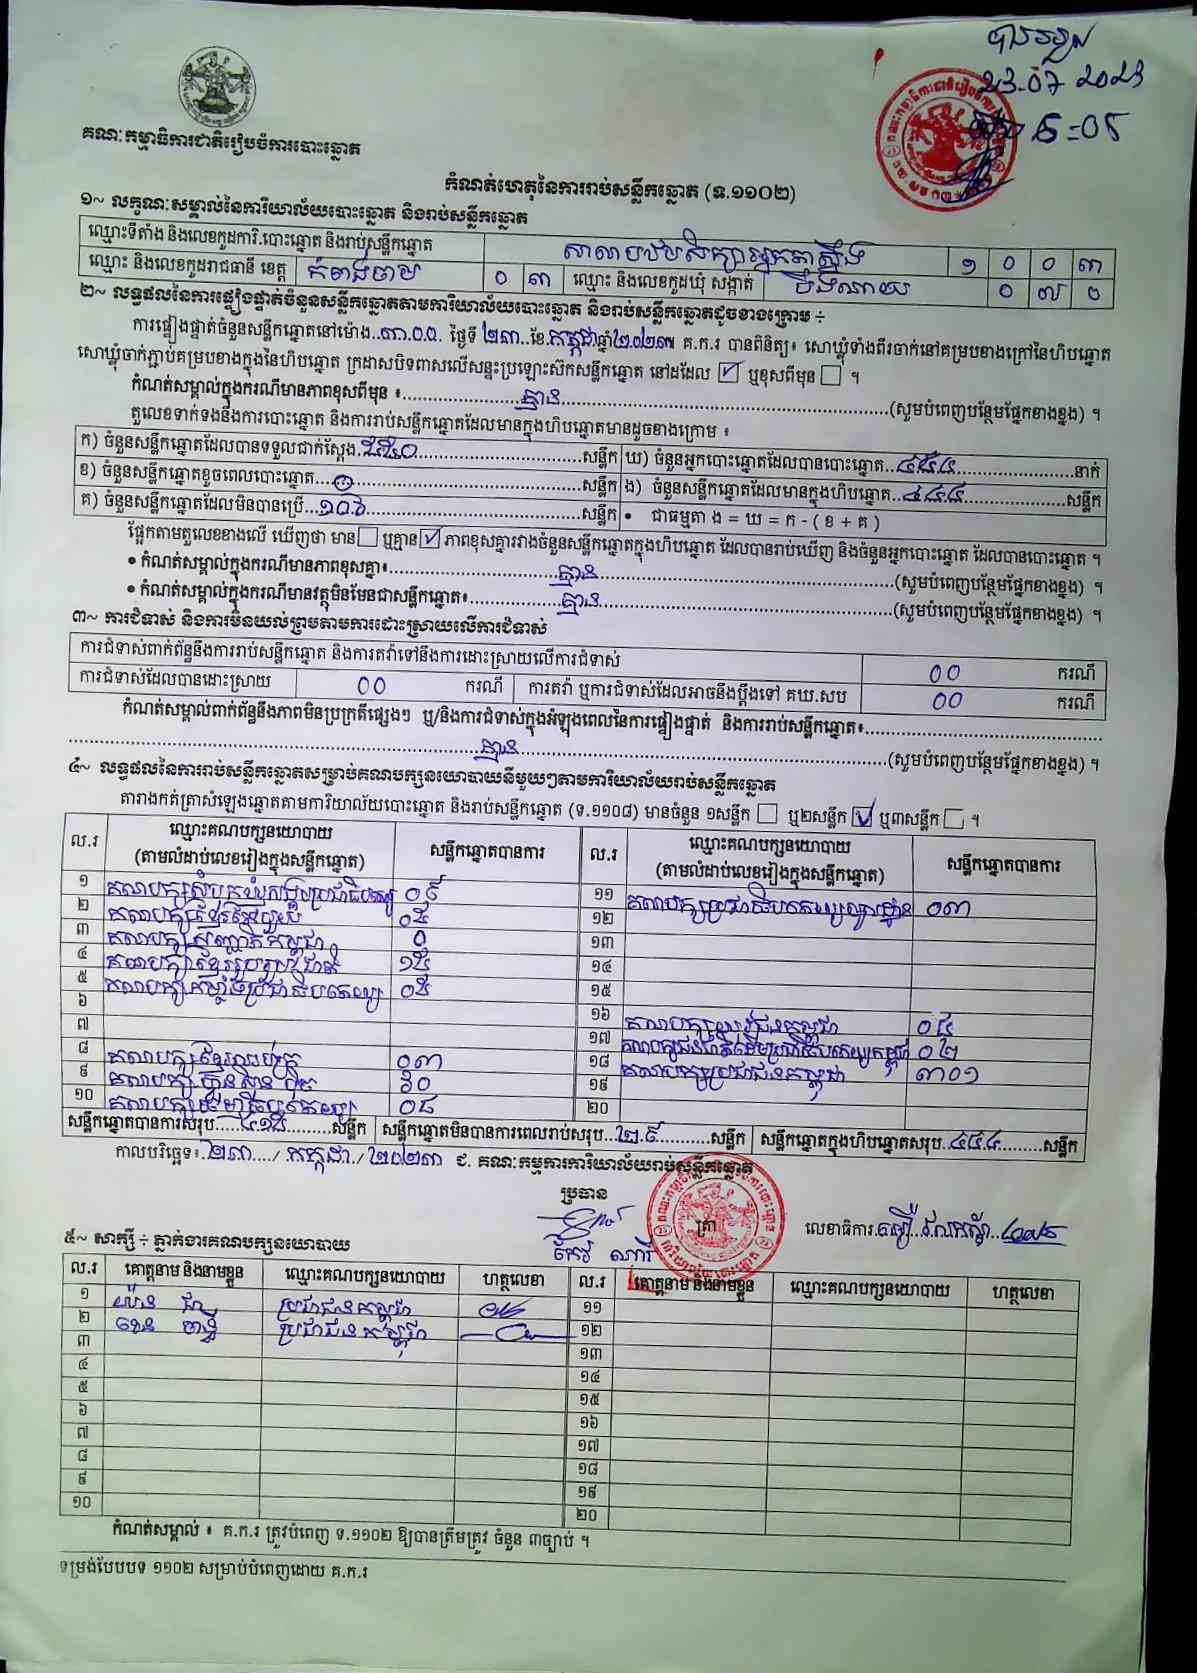 បានទទួល
23-07 2023
គណៈកម្មាធិការជាតិរៀបចំការបោះឆ្នោត
កំណត់ហេតុនៃការរាប់សន្លឹកឆ្នោត (ទ.១១០២)
១~ លក្ខណៈសម្គាល់នៃការិយាល័យបោះឆ្នោត និងរាប់សន្លឹកឆ្នោត
ឈ្មោះទីតាំង និងលេខកូដការិ.បោះឆ្នោត និងរាប់សន្លឹកឆ្នោត សាលាបឋមសិក្សាអ្នកតាស្នឹង ១ ០ ០ ៣
ឈ្មោះ និងលេខកូដរាជធានី ខេត្ត កំពង់ចាម ០ ៣ ឈ្មោះ និងលេខកូដឃុំ សង្កាត់ បឹងណាយ ០ ៧ ០
២~ លទ្ធផលនៃការផ្ទៀងផ្ទាត់ចំនួនសន្លឹកឆ្នោតតាមការិយាល័យបោះឆ្នោត និងរាប់សន្លឹកឆ្នោតដូចខាងក្រោម ÷
ការផ្ទៀងផ្ទាត់ចំនួនសន្លឹកឆ្នោតនៅម៉ោង..៣.០.០. ថ្ងៃទី ២៣..ខែ.កក្កដា ឆ្នាំ ២០២៣ គ.ក.រ បានពិនិត្យ៖ សោឃ្លុំទាំងពីរចាក់នៅគម្របខាងក្រៅនៃហិបឆ្នោត
សោឃ្លុំចាក់ភ្ជាប់គម្របខាងក្នុងនៃហិបឆ្នោត ក្រដាសបិទពាសលើសន្ទះប្រឡោះស៊កសន្លឹកឆ្នោត នៅដដែល ☑ ឬខុសពីមុន ☐ ។
កំណត់សម្គាល់ក្នុងករណីមានភាពខុសពីមុន ៖ គ្មាន (សូមបំពេញបន្ថែមផ្នែកខាងខ្នង) ។
តួលេខទាក់ទងនឹងការបោះឆ្នោត និងការរាប់សន្លឹកឆ្នោតដែលមានក្នុងហិបឆ្នោតមានដូចខាងក្រោម ៖
ក) ចំនួនសន្លឹកឆ្នោតដែលបានទទួលជាក់ស្តែង ៥៥០ សន្លឹក ឃ) ចំនួនអ្នកបោះឆ្នោតដែលបានបោះឆ្នោត ៤៤៤ នាក់
ខ) ចំនួនសន្លឹកឆ្នោតខូចពេលបោះឆ្នោត ០ សន្លឹក ង) ចំនួនសន្លឹកឆ្នោតដែលមានក្នុងហិបឆ្នោត ៤៤៤ សន្លឹក
គ) ចំនួនសន្លឹកឆ្នោតដែលមិនបានប្រើ ១០៦ សន្លឹក • ជាធម្មតា ង = ឃ = ក - ( ខ + គ )
ផ្អែកតាមតួលេខខាងលើ ឃើញថា មាន ☐ ឬគ្មាន ☑ ភាពខុសគ្នារវាងចំនួនសន្លឹកឆ្នោតក្នុងហិបឆ្នោត ដែលបានរាប់ឃើញ និងចំនួនអ្នកបោះឆ្នោត ដែលបានបោះឆ្នោត ។
• កំណត់សម្គាល់ក្នុងករណីមានភាពខុសគ្នា៖ គ្មាន (សូមបំពេញបន្ថែមផ្នែកខាងខ្នង) ។
• កំណត់សម្គាល់ក្នុងករណីមានវត្ថុមិនមែនជាសន្លឹកឆ្នោត៖ គ្មាន (សូមបំពេញបន្ថែមផ្នែកខាងខ្នង) ។
៣~ ការជំទាស់ និងការមិនយល់ព្រមតាមការដោះស្រាយលើការជំទាស់
ការជំទាស់ពាក់ព័ន្ធនឹងការរាប់សន្លឹកឆ្នោត និងការតវ៉ាទៅនឹងការដោះស្រាយលើការជំទាស់ ០០ ករណី
ការជំទាស់ដែលបានដោះស្រាយ ០០ ករណី ការតវ៉ា ឬការជំទាស់ដែលអាចនឹងប្តឹងទៅ គឃ.សប ០០ ករណី
កំណត់សម្គាល់ពាក់ព័ន្ធនឹងភាពមិនប្រក្រតីផ្សេងៗ ឬ/និងការជំទាស់ក្នុងអំឡុងពេលនៃការផ្ទៀងផ្ទាត់ និងការរាប់សន្លឹកឆ្នោត៖
គ្មាន (សូមបំពេញបន្ថែមផ្នែកខាងខ្នង) ។
៤~ លទ្ធផលនៃការរាប់សន្លឹកឆ្នោតសម្រាប់គណបក្សនយោបាយនីមួយៗតាមការិយាល័យរាប់សន្លឹកឆ្នោត
តារាងកត់ត្រាសំឡេងឆ្នោតតាមការិយាល័យបោះឆ្នោត និងរាប់សន្លឹកឆ្នោត (ទ.១១០៨) មានចំនួន ១សន្លឹក ☐ ឬ២សន្លឹក ☑ ឬ៣សន្លឹក ☐ ។
ល.រ ឈ្មោះគណបក្សនយោបាយ (តាមលំដាប់លេខរៀងក្នុងសន្លឹកឆ្នោត) សន្លឹកឆ្នោតបានការ ល.រ ឈ្មោះគណបក្សនយោបាយ (តាមលំដាប់លេខរៀងក្នុងសន្លឹកឆ្នោត) សន្លឹកឆ្នោតបានការ
១ គណបក្សសំបុកឃ្មុំសង្គមប្រជាធិបតេយ្យ ០៩ ១១ គណបក្សប្រជាធិបតេយ្យមូលដ្ឋាន ០៣
២ គណបក្សខ្មែរតែមួយ ០៥ ១២
៣ គណបក្ស កម្ពុជា ១៣
៤ គណបក្សខ្មែររួបរួមជាតិ ១៥ ១៤
៥ គណបក្សកម្លាំងប្រជាធិបតេយ្យ ០៥ ១៥
៦ ១៦ គណបក្សយុវជនកម្ពុជា ០៤
៧ ១៧ គណបក្សជនជាតិដើមប្រជាធិបតេយ្យកម្ពុជា ០២
៨ គណបក្សខ្មែរអភិរក្ស ០៣ ១៨ គណបក្សប្រជាជនកម្ពុជា ៣០១
៩ គណបក្សហ្វ៊ុនស៊ិនប៉ិច ៦០ ១៩
១០ ០៨ ២០
សន្លឹកឆ្នោតបានការសរុប ៤១៥ សន្លឹក សន្លឹកឆ្នោតមិនបានការពេលរាប់សរុប ២៩ សន្លឹក សន្លឹកឆ្នោតក្នុងហិបឆ្នោតសរុប ៤៤៤ សន្លឹក
កាលបរិច្ឆេទ៖ ២៣ / កក្កដា / ២០២៣ ជ. គណៈកម្មការការិយាល័យរាប់សន្លឹកឆ្នោត
ប្រធាន
ត្រា
លេខាធិការ
កែវ ណារី
៥~ សាក្សី ÷ ភ្នាក់ងារគណបក្សនយោបាយ
ល.រ គោត្តនាម និងនាមខ្លួន ឈ្មោះគណបក្សនយោបាយ ហត្ថលេខា ល.រ គោត្តនាម និងនាមខ្លួន ឈ្មោះគណបក្សនយោបាយ ហត្ថលេខា
១ ប្រជាជនកម្ពុជា ១១
២ ប្រជាជនកម្ពុជា ១២
៣ ១៣
៤ ១៤
៥ ១៥
៦ ១៦
៧ ១៧
៨ ១៨
៩ ១៩
១០ ២០
កំណត់សម្គាល់ ៖ គ.ក.រ ត្រូវបំពេញ ទ.១១០២ ឱ្យបានត្រឹមត្រូវ ចំនួន ៣ច្បាប់ ។
ទម្រង់បែបបទ ១១០២ សម្រាប់បំពេញដោយ គ.ក.រ